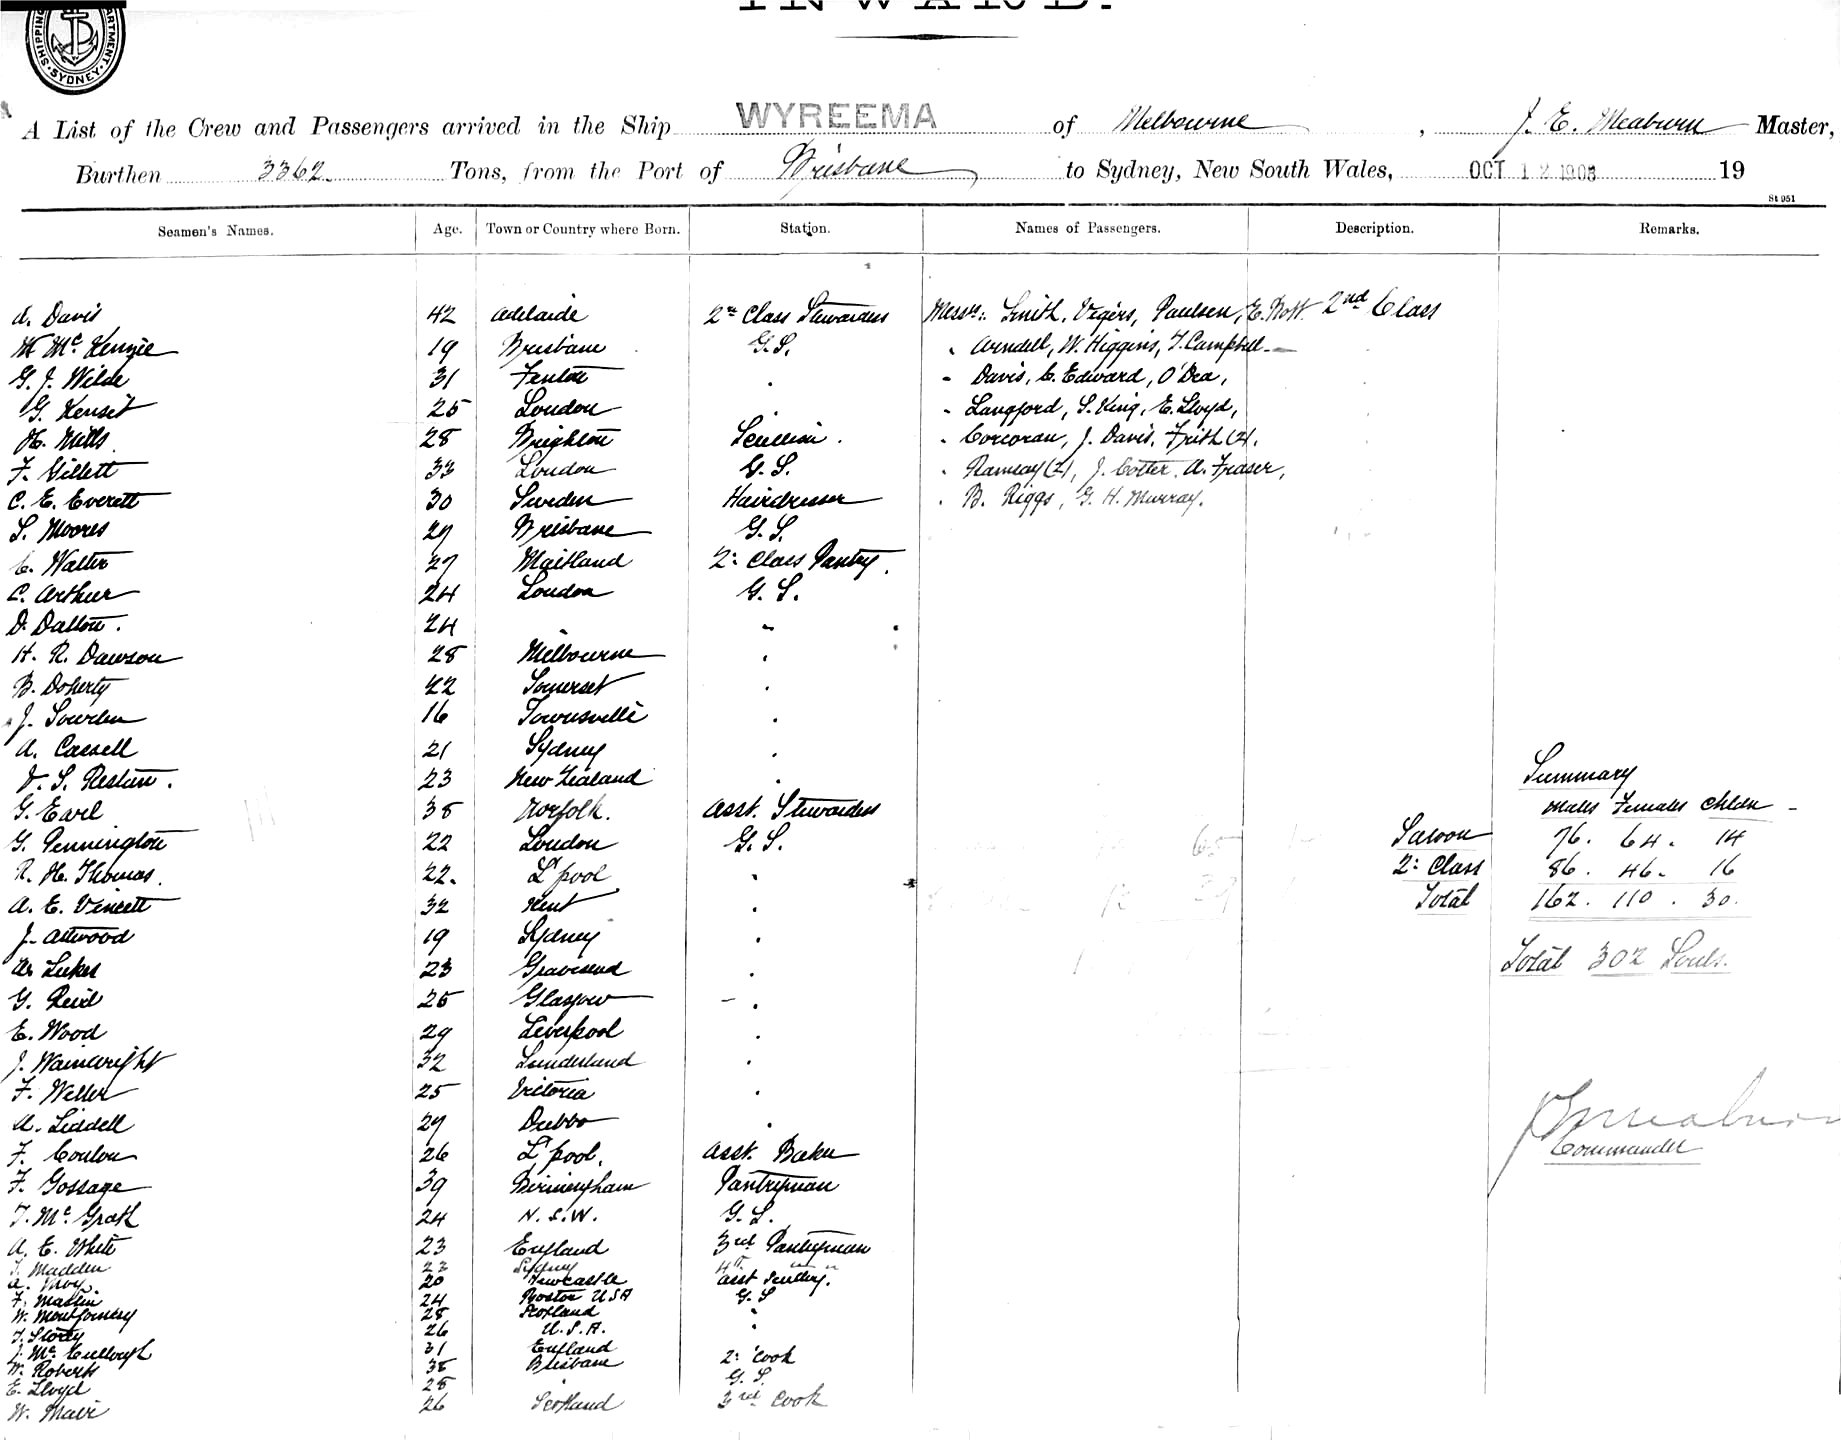 INWARD.
SHIPPING DEPARTMENT SYDNEY
A List of the Crew and Passengers arrived in the Ship WYREEMA of Melbourne, J. E. Meaburn Master,
Burthen 3362 Tons, from the Port of Brisbane to Sydney, New South Wales, OCT 12 1908 19
St 951
Seamen's Names. Age. Town or Country where Born. Station. Names of Passengers. Description. Remarks.
A. Davis 42 Adelaide 2nd Class Stewardess Messrs: Smith, Vigers, Paulsen, E. Nott 2nd Class
M McKenzie 19 Brisbane G.S. " Arndell, W. Higgins, T. Campbell
G. J. Wilde 31 Fenton " " Davis, C. Edward, O'Dea,
G. Kensit 25 London " " Langford, S. King, E. Lloyd,
H. Mills 28 Brighton " Corcoran, J. Davis, Frith (2),
F. Gillett 33 London G.S. " Ramsay (2), J. Cotter, A. Fraser,
C. E. Everett 30 Sweden Hairdresser " B. Riggs, G. H. Murray.
S. Moores 29 Brisbane G.S.
C. Walter 27 Maitland 2: Class Pantry.
C. Arthur 24 London G. S.
D. Dalton. 24 " "
H. R. Dawson 28 Melbourne "
B. Doherty 22 Somerset "
J. Sowden 16 Townsville "
A. Cassell 21 Sydney "
V. S. 23 New Zealand "
Summary
G. Earl 38 Norfolk. Asst. Stewardess Males Females Chldn
G. Pennington 22 London G. S. Saloon 76. 64. 14
R. H. Thomas. 22. L'pool " 2: Class 86. 46. 16
A. E. Vincett 32 Kent " Total 162. 110. 30.
J. Attwood 19 Sydney "
Total 302 Souls.
A. Lukes 23 Gravesend "
G. Reid 25 Glasgow "
E. Wood 29 Liverpool "
J. Wainwright 32 Sunderland "
F. Weller 25 Victoria "
A. Liddell 29 Dubbo "
J E Meaburn
Commander
F. Coulon 26 L'pool. Asst. Baker
F. Gossage 39 Birmingham Pantryman
T. McGrath 24 N.S.W. G.S.
A. E. White 23 England 3rd Pantryman
T. Madden 22 Sydney 4th "
A. 20 Newcastle Asst Scullery.
F. Martin 24 Boston USA G.S
W. Montgomery 28 Scotland "
T. Storey 26 U.S.A. "
J. McCullough 31 England 2: Cook
W. Roberts 38 Brisbane G.S.
E. Lloyd 28 "
W. Mair 26 Scotland 3rd Cook